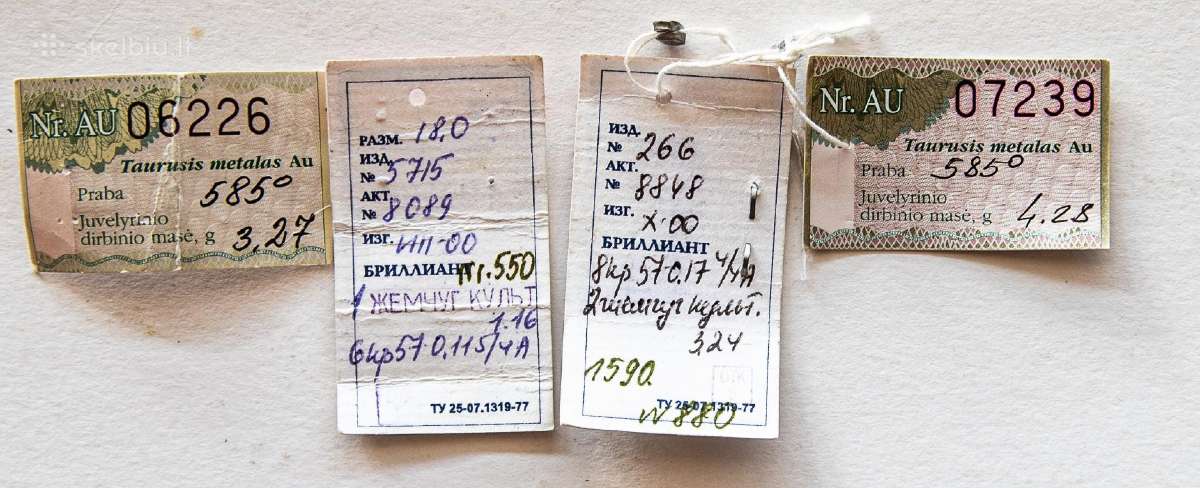 skelbiu.lt
Nr. AU 06226
Taurusis metalas Au
Praba 585°
Juvelyrinio
dirbinio masė, g 3,27
РАЗМ. 18,0
ИЗД.
№ 5715
АКТ.
№ 8089
ИЗГ. -00
БРИЛЛИАНТ
550
1 ЖЕМЧУГ КУЛЬТ
1.16
6кр57 0.115/4А
ТУ 25-07.1319-77
ИЗД.
№ 266
АКТ.
№ 8848
ИЗГ. X-00
БРИЛЛИАНТ
8кр57 0.17 4/4А
2 жемчуг культ.
3,24
1590
ТУ 25-07.1319-77
880
Nr. AU 07239
Taurusis metalas Au
Praba 585°
Juvelyrinio
dirbinio masė, g 4.28